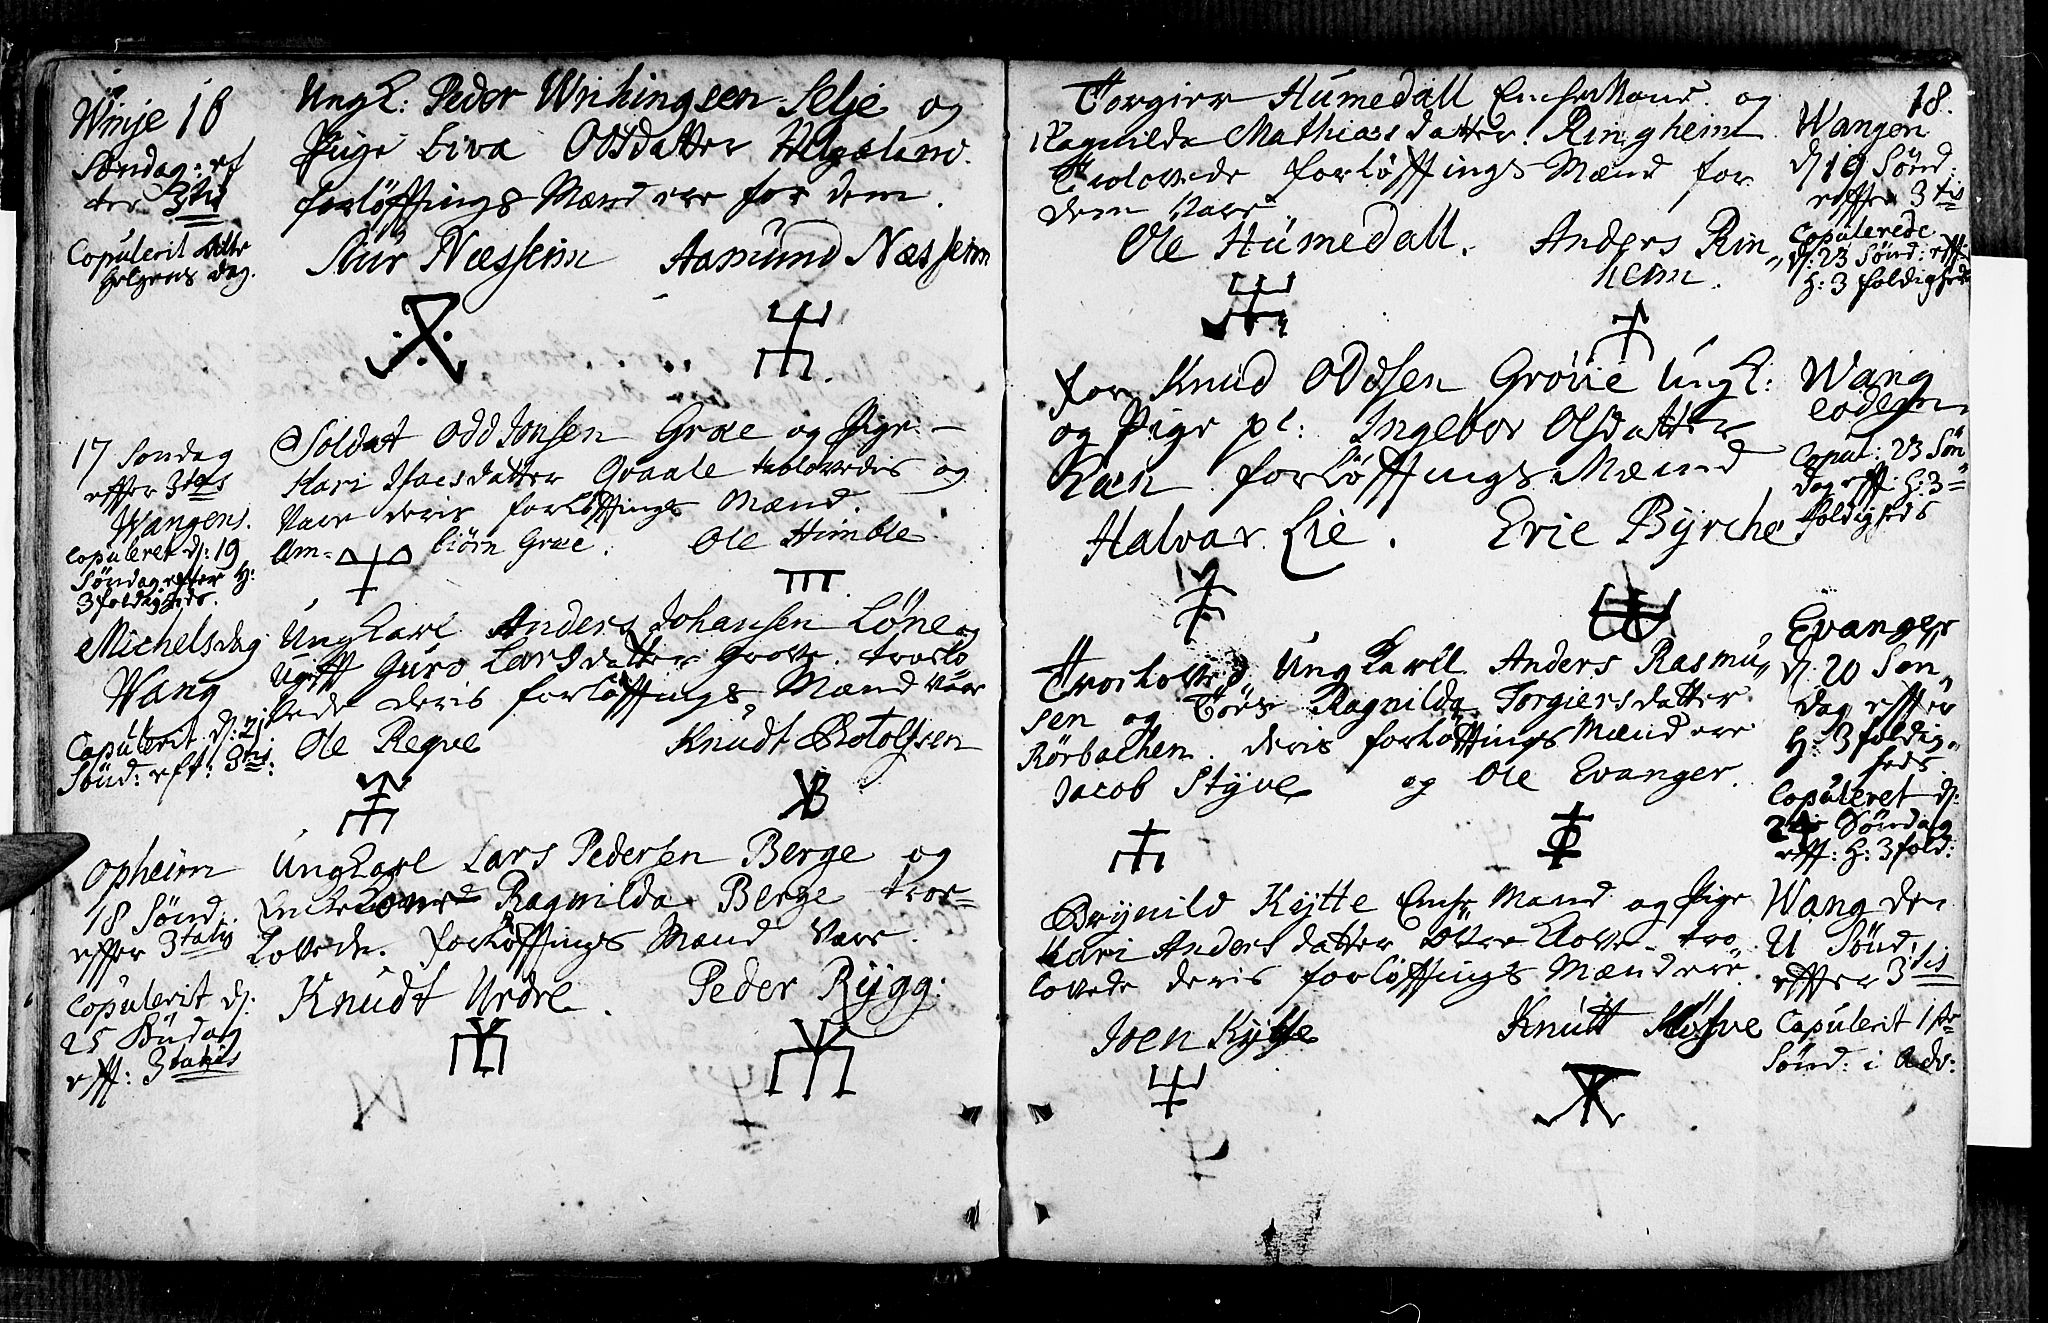 Winje 16
Søndag: ef
ter 3tis
Copulerit Alle
helgens dag.
Ungk: Peder Wichingsen Selje og
Pige Siva Odsdatter Helgeland.
forløffings Mænd ere for dem.
Stur Næsseim Aamund Næsseim
17 Søndag
effter 3tatis
Wangens.
Copuleret d: 19
Søndag efter H:
3foldigheds.
Soldat Odd Jonsen Græe og Pige
Kari Isacsdatter Graale trolovedis og
Vare deris forløffings Mænd.
Am-biørn Græe. Ole Himble
Michelsdag
Wang
Copulerit d: 21
Sønd: eft: 3tis:
UngKarl Anders Johansen Løne og
Ugifft Guro Larsdatter Grove. trolo
vede deris forløffings Mænd Vare
Ole Reqve Knudt Botolfsen
Opheim
18 Sønd.
effter 3tatis
Copulerit d:
25 Sündag
eff: 3tatis
UngKarl Lars Pedersen Berge og
Enkekone Ragnilda Berge troe-
Lovede. forløffings Mænd Vare.
Knudt Urdre. Peder Rygg:
18.
Torgier Humedall EnckeMand og
Ragnilda Mathiasdatter Ringheim
Trolovede forløffings Mænd for
dem Vare
Ole Humedall. Anders Rin„
heim.
Wangen
d 19 Sønd:
effter 3tis
Copulerede
d: 23 Sønd: efft
H: 3foldigheds
for Knud Oddsen Grøue UngK:
og Pige pl: Ingebor Olsdatter
forløffings Mænd
Halvar Lie. Eric Byrche
Wang
eodem
Copul: 23 Søn„
dag eff: H: 3=
foldigheds
Troeloved UngKarll Anders Rasmu„
sen og Tøes Ragnilda Torgiersdatter
Rørbachen. deris forløffings Mænd ere
Jacob Styve og Ole Evanger.
Evanger
d: 20 Søn„
dag effter
H: 3foldig„
heds
Copuleret d:
24 Søndag
eff: H: 3fold:
Brynild Kytte Encke Mand og Pige
Kari Andersdatter Øvre Klove tro
lovede deris forløffings Mænd ere.
Iven Kytte Knutt Mølve
Wang den
U Sønd:
effter 3tis
Copulerit 1ste
Sønd: i Adv: